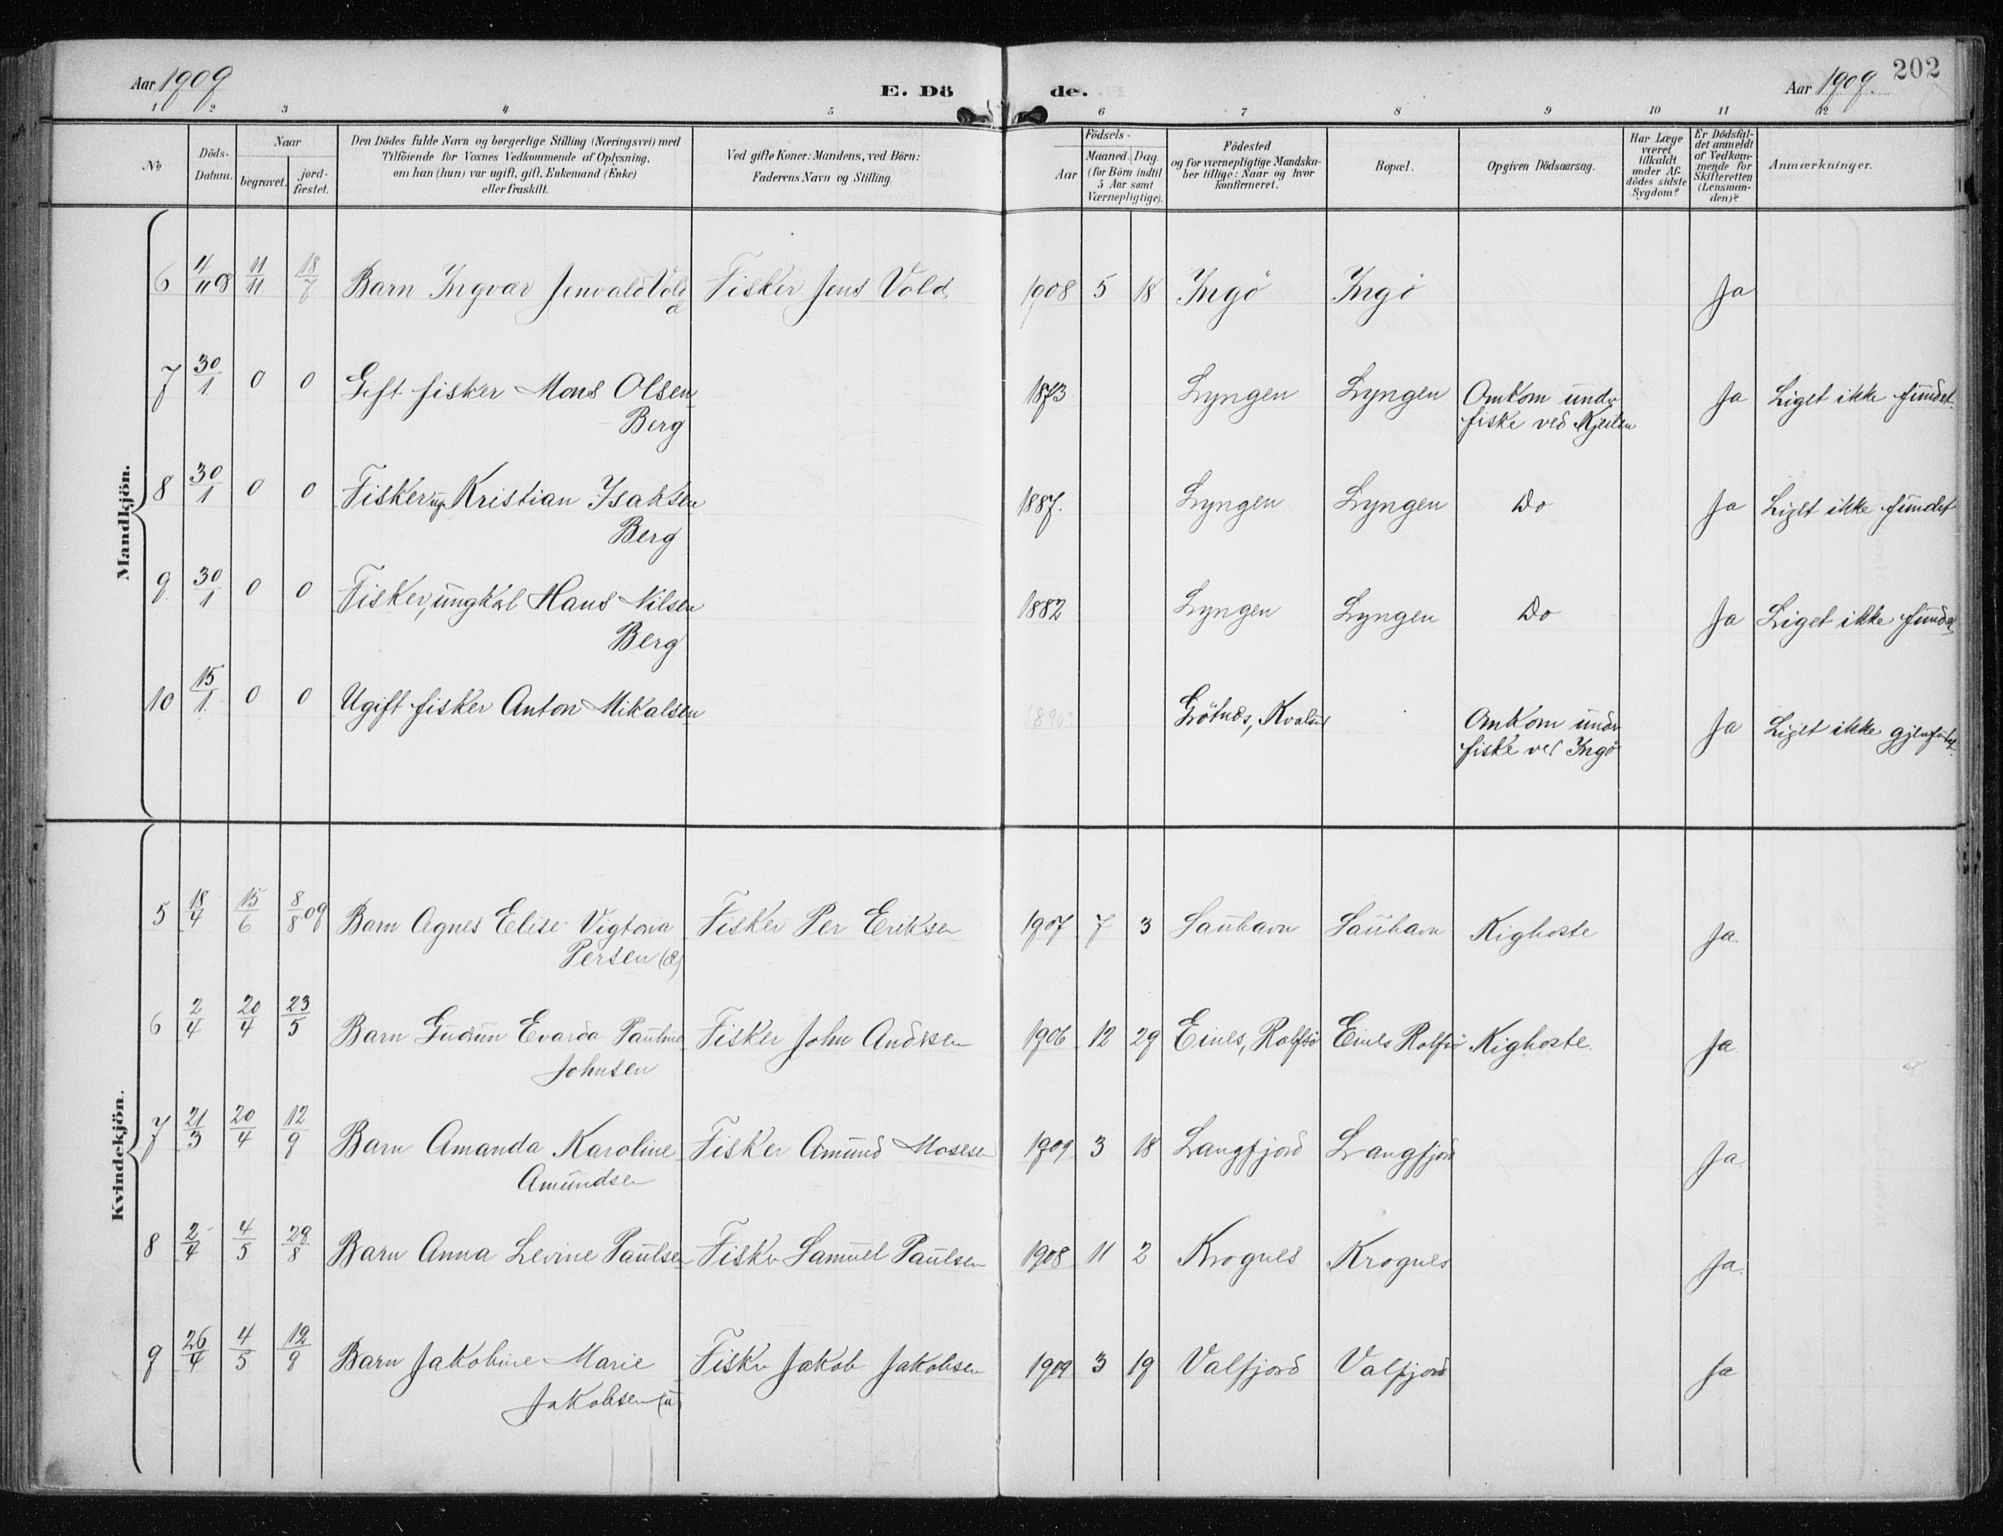 202
Aar 1909
E. Dö de.
Aar 1909.
1 2 3 4 5 6 7 8 9 10 11 12
No
Döds-Datum.
Naar
begravet.
jord-fæstet.
Den Dödes fulde Navn og borgerlige Stilling (Næringsvei) med
Tilföiende for Voxnes Vedkommende af Oplysning,
om han (hun) var ugift, gift, Enkemand (Enke)
eller fraskilt.
Ved gifte Koner: Mandens, ved Börn:
Faderens Navn og Stilling.
Födsels-
Aar
Maaned. Dag.
(for Börn indtil
5 Aar samt
Værnepligtige).
Födested
og for værnepligtige Mandska-
ber tillige: Naar og hvor
konfirmeret.
Bopæl.
Opgiven Dödsaarsag.
Har Læge
været
tilkaldt
under Af-
dödes sidste
Sygdom?
Er Dödsfal-
det anmeldt
af Vedkom-
mende for
Skifteretten
(Lensman-
den)?
Anmærkninger.
Mandkjön.
6 4/11 08 11/11 18/7 Barn Ingvar Jenvald Vold Fisker Jens Vold 1908 5 18 Ingö Ingö Ja
7 30/1 0 0 Gift fisker Mons Olsen 1873 Lyngen Lyngen Omkom under Ja Liget ikke fundet.
Berg fiske ved Kjeilen
8 30/1 0 0 Fisker ug Kristian Isaksen 1887. Lyngen Lyngen Do Ja Liget ikke fundet
Berg
9 30/1 0 0 Fisker, ungkal Hans Nilsen 1882 Lyngen Lyngen Do Ja Liget ikke fundet
Berg
10 15/1 0 0 Ugift fisker Anton Mikalsen Grötnes, Kvalsund Omkom under Ja Liget ikke
fiske ved Ingö
Kvindekjön.
5 18/4 15/6 8/8 09 Barn Agnes Elise Vigtoria Fisker Per Eriksen 1907 7 3 Sauhavn Sauhavn Kighoste Ja.
Persen
6 2/4 20/4 23/5 Barn Gudrun Evarda Pauline Fisker John Andrsen 1906 12 29 Eines, Rolfsö Eines Rolfsö Kighoste. Ja.
Johnsen
7 21/3 20/4 12/9 Barn Amanda Karoline Fisker Amund Mosesen 1909 3 18 Langfjord Langfjord Ja.
Amundsen
8 2/4 4/5 29/8 Barn Anna Levine Paulsen Fisker Samuel Paulsen 1908 11 2 Krognes Krognes Ja.
9 26/4 4/5 12/9 Barn Jakobine Marie Fisker Jakob Jakobsen 1909 3 19 Valfjord Valfjord Ja
Jakobsen (u)